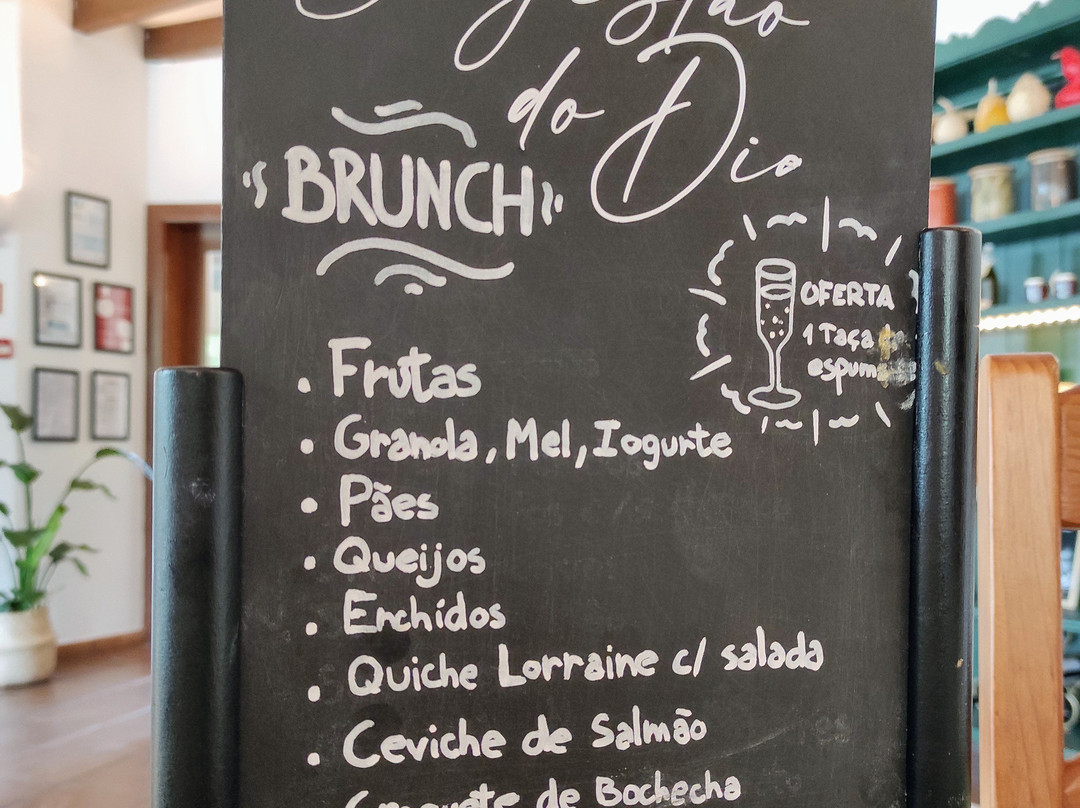 do Dia
BRUNCH
OFERTA
1 Taça
• Frutas
• Granola, Mel, Iogurte
• Pães
• Queijos
• Enchidos
• Quiche Lorraine c/ salada
• Ceviche de Salmão
de Bochecha